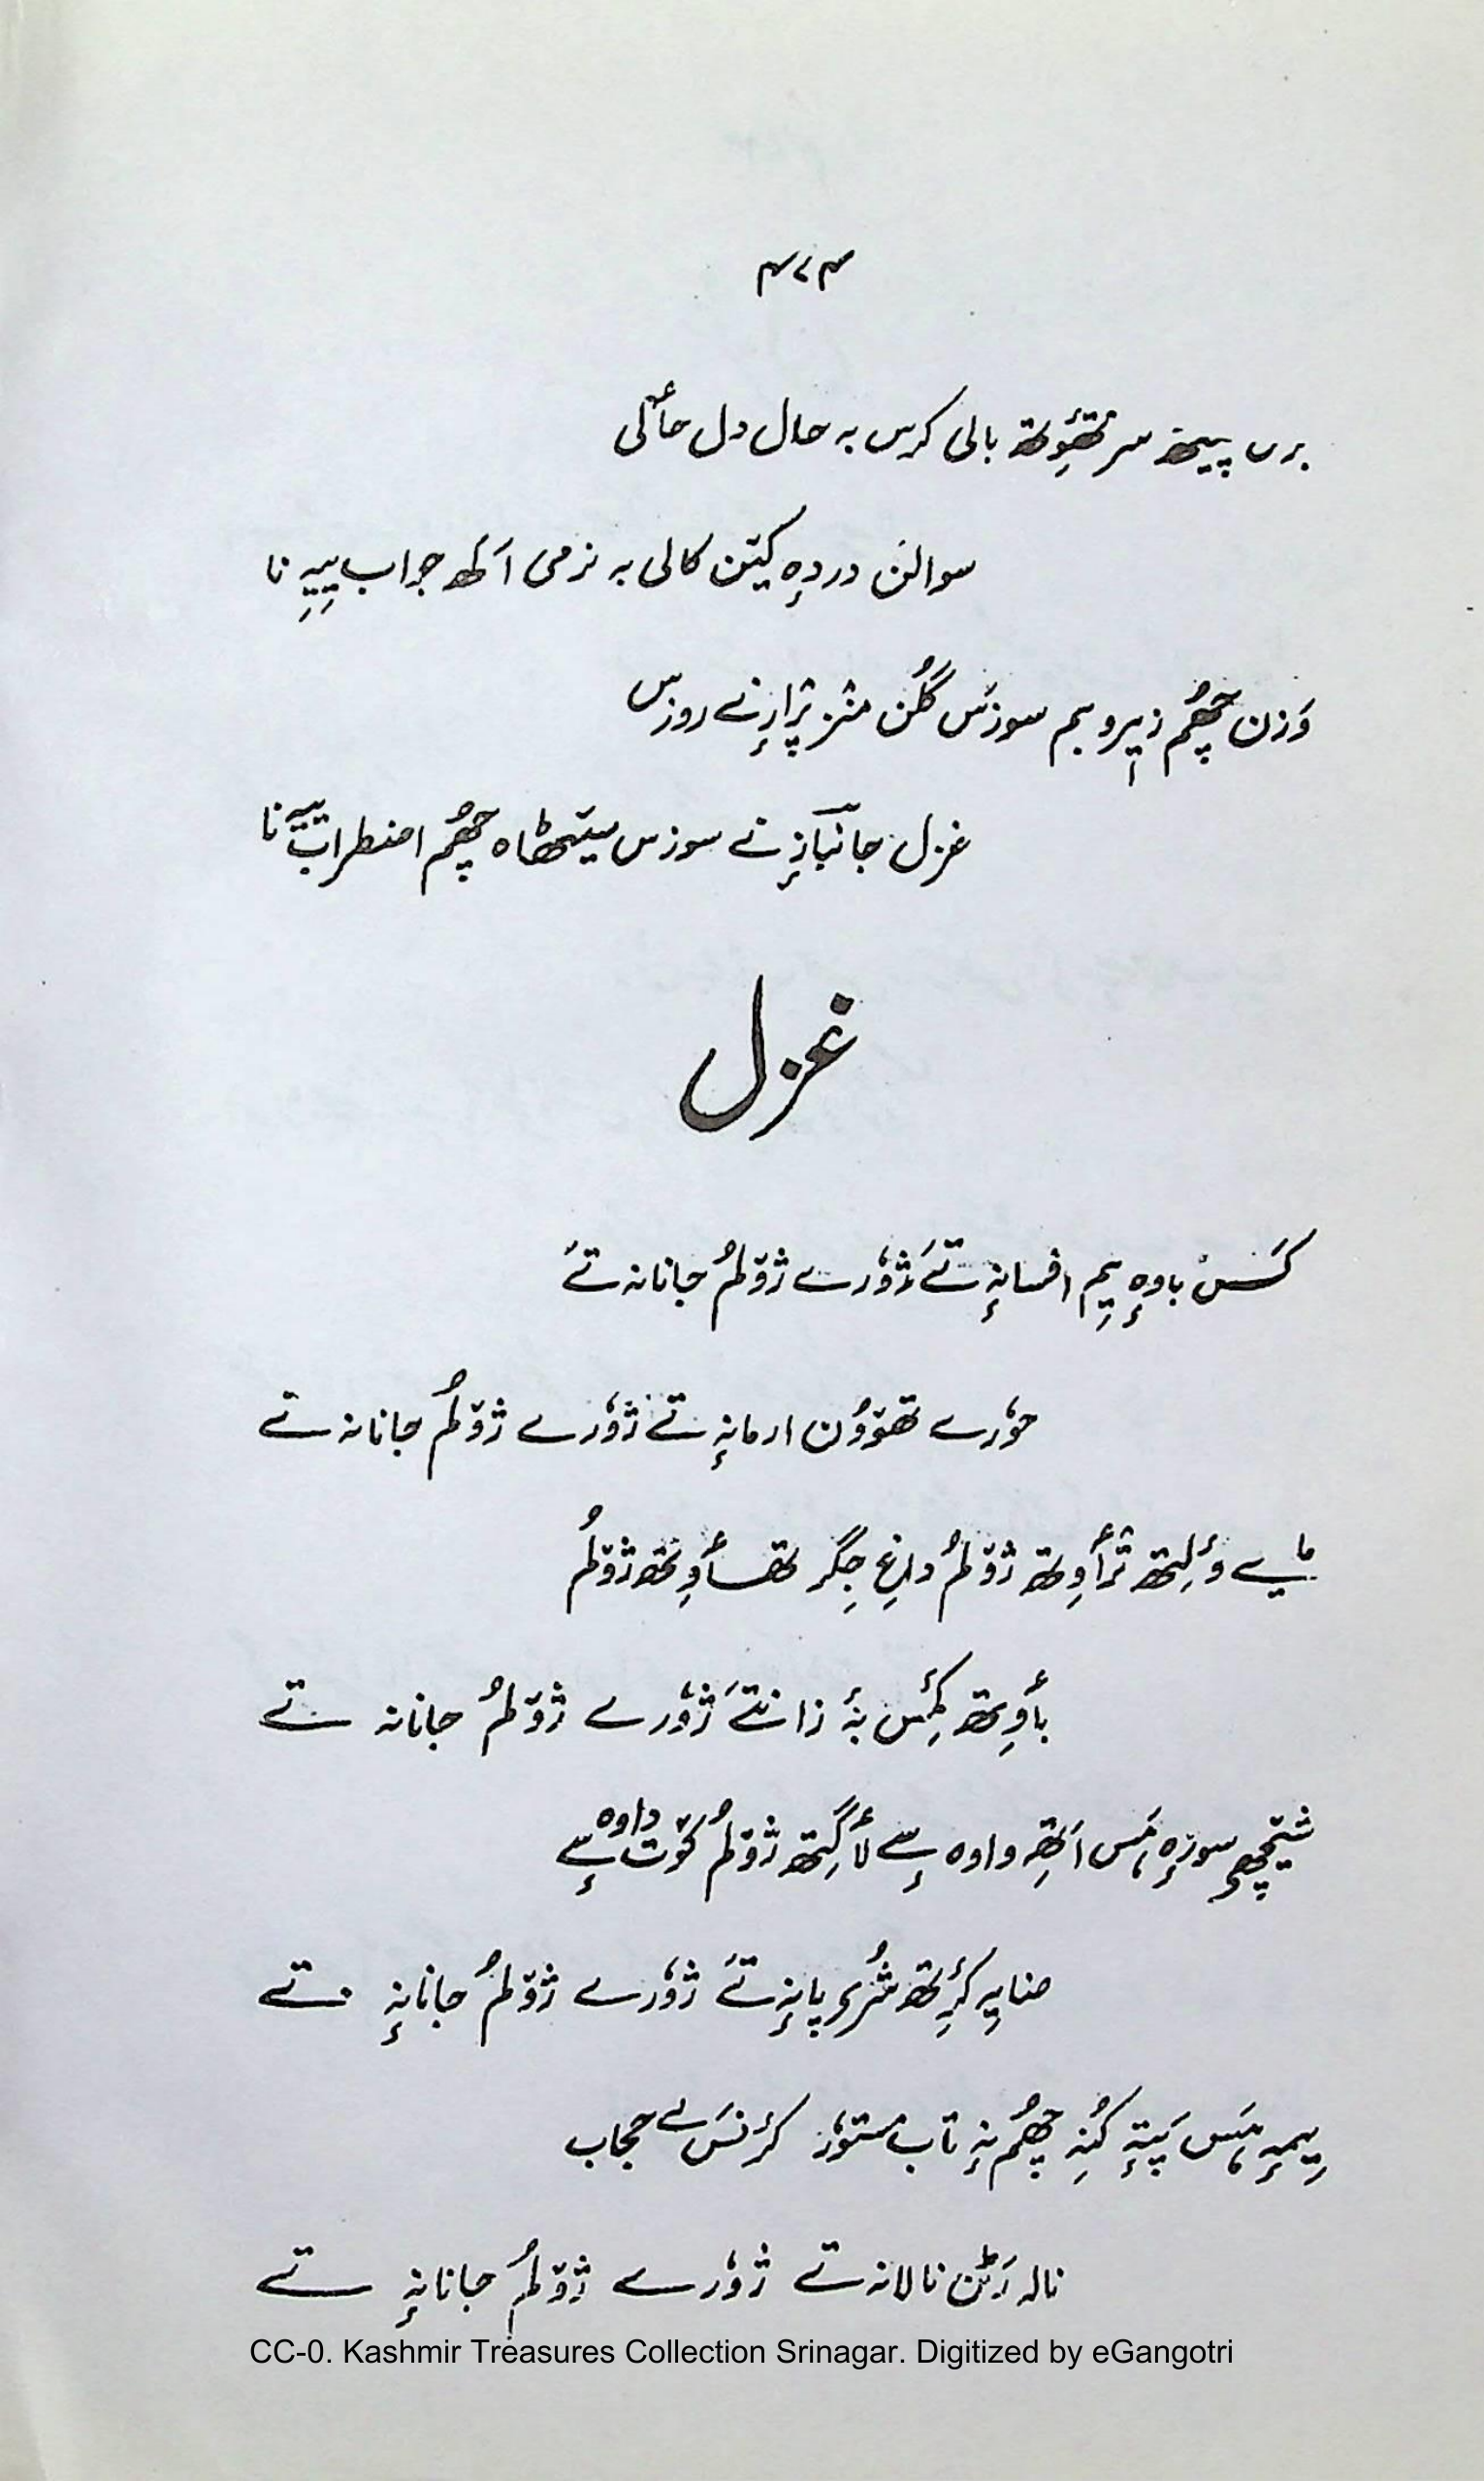 ۴۷۴
برس پیٹھ سر تھٔوِتھ بالی کرس بہ حال دل حٲلی
سوالن دردٕہ کیتن کالی بہ نرمی اَتھ جواب یِیہِ نا
وَزن چھُم زیرو بم سوزَس گُلن منز پرٛارنے روزس
غزل جانبازٕ نے سوزس سیٹھاہ چھُم اضطراب ییہ نا
غزل
کَس باوٕہ یِم افسانہٕ تےَ ژوٗرے ژۆلُم جانانہ تےَ
حوٗرے تھوٚوُن ارمانہٕ تے ژوٗرے ژۆلُم جانانہ تے
مایے وٕلِتھ ترٛٲوِتھ ژۆلُم داغِ جِگر تھٲوِتھ ژۆلُم
بٲوِتھ کٔمِس بہٕ زانتےَ ژوٗرے ژۆلُم جانانہ تے
سوزٕہ ہَس اَتھِ واوہ سٕے لٲگِتھ ژۆلُم کوٚت داوہ سٕے
ضایہِ کٔرِتھ شُرۍ پانہٕ تےَ ژوٗرے ژۆلُم جانانہٕ تے
یِیمہٕ ہَس پَتہٕ کُنہِ چھُم نہٕ تاب مستوٗر کٔرنَس بے حجاب
نالہ رَٹن نالانہ تے ژوٗرے ژۆلُم جانانہٕ تے
CC-0. Kashmir Treasures Collection Srinagar. Digitized by eGangotri